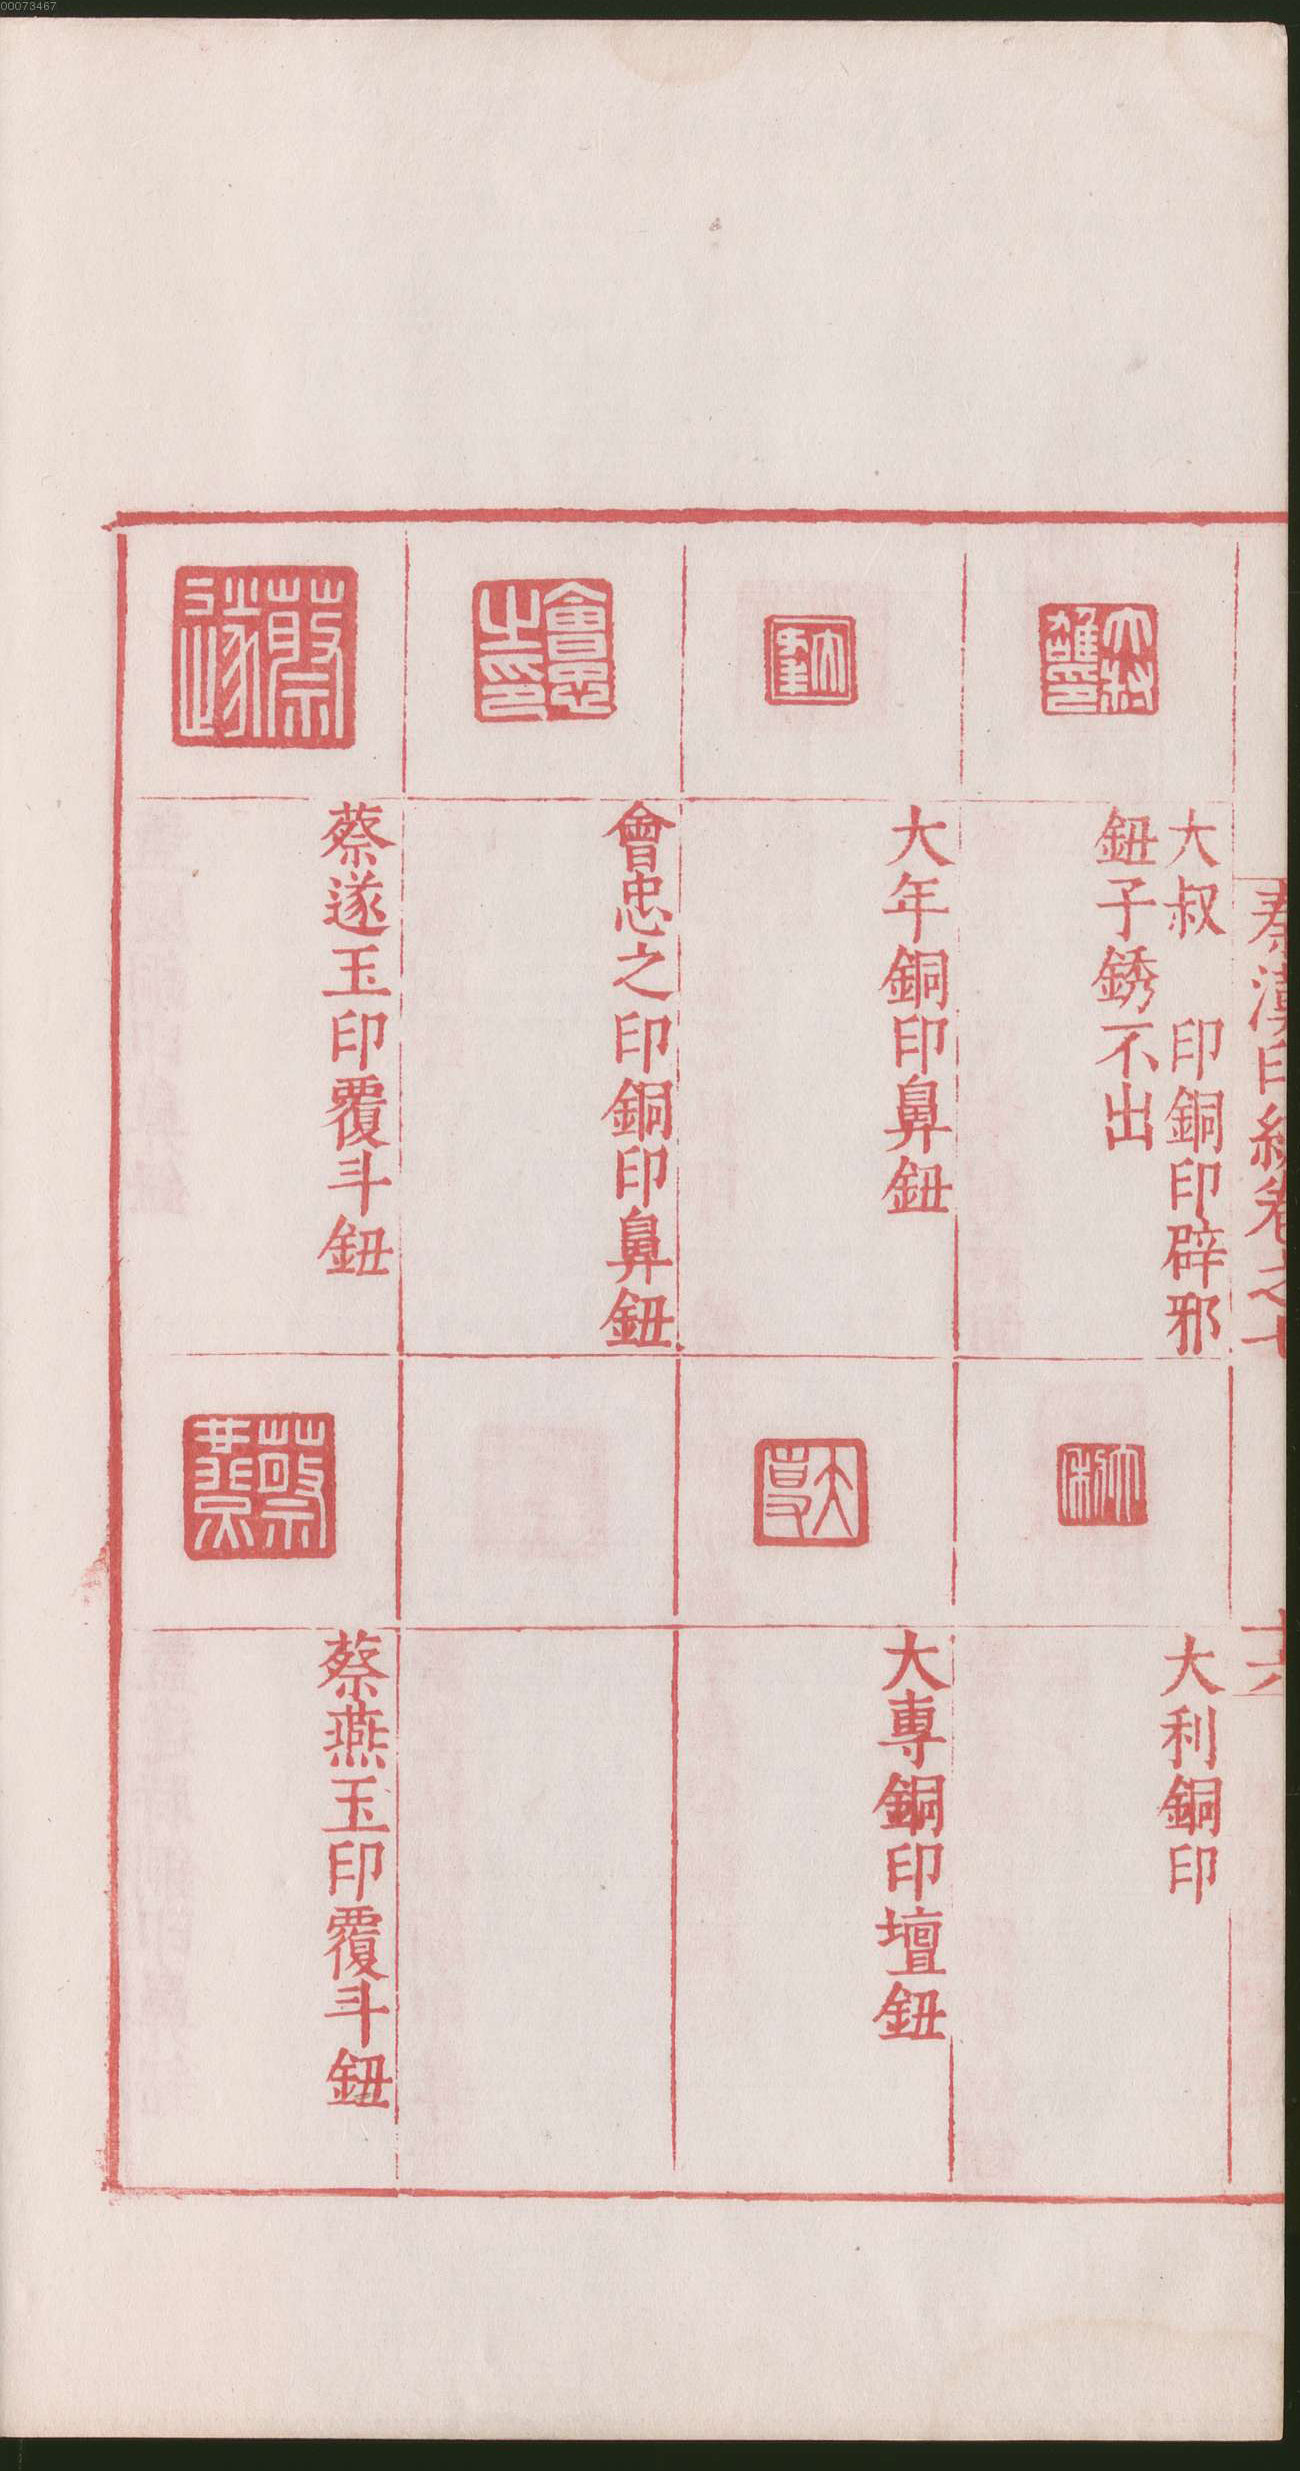 00073467
秦漢印統卷之七
十六
大叔 印銅印辟邪
鈕子銹不出
大利銅印
大年銅印鼻鈕
大專銅印壇鈕
會忠之印銅印鼻鈕
蔡遂玉印覆斗鈕
蔡燕玉印覆斗鈕